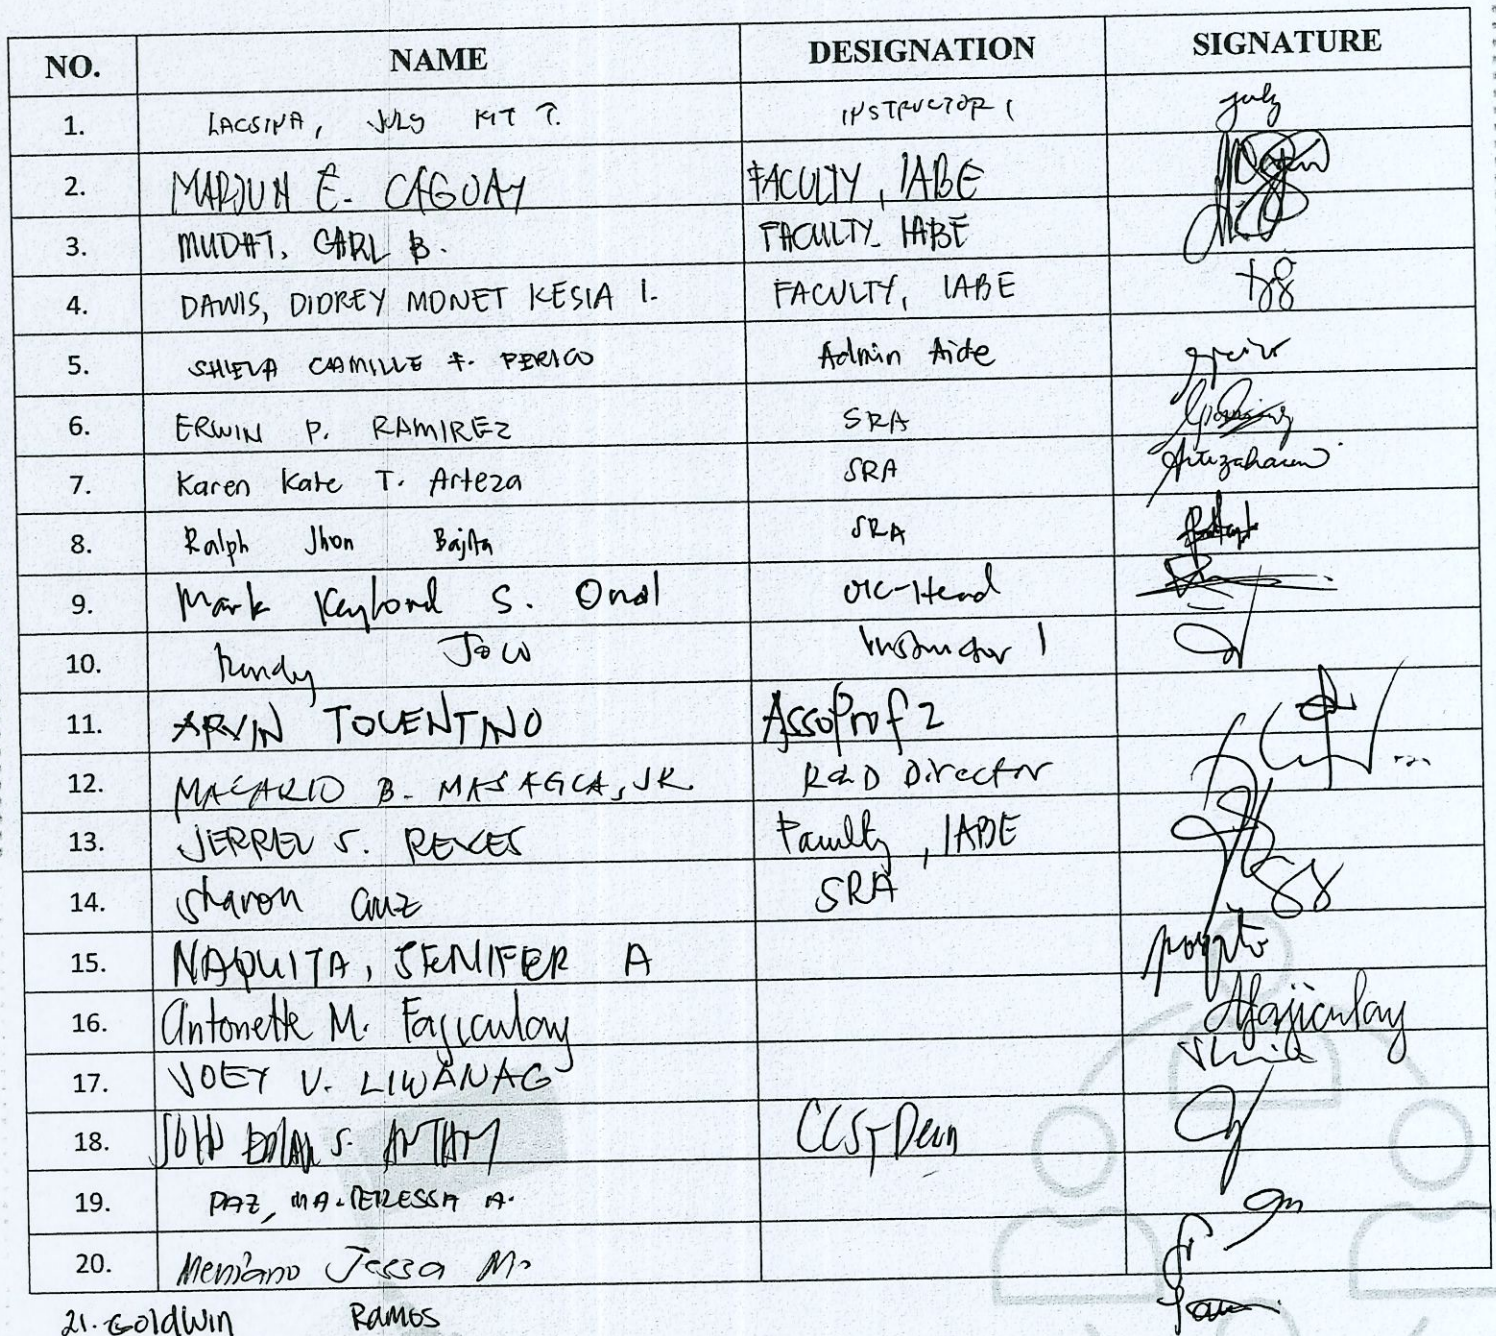 NO. NAME DESIGNATION SIGNATURE
1. LACSINA, JULY KIT T. INSTRUCTOR 1 july
2. MARJUN E. CAGUAY FACULTY, IABE
3. MUDAT, CARL B. FACULTY IABE
4. DAWIS, DIDREY MONET KESIA I. FACULTY, IABE
5. SHIELA CAMILLE F. PERICO Admin Aide
6. ERWIN P. RAMIREZ SRA
7. Karen Kate T. Arteza SRA
8. Ralph Jhon Bajita SRA
9. Mark Keylord S. Onal OIC-Head
10. Randy Joco Instructor 1
11. ARVIN TOLENTINO AssoProf 2
12. MACARIO B. MASAGCA, JR. R&D Director
13. JERREL S. REYES Faculty, IABE
14. Sharon Cruz SRA
15. NAQUITA, JENIFER A
16. Antonette M. Fajiculay Afajiculay
17. JOEY V. LIWANAG
18. S. CCST Dean
19. PAZ, MA. TERESSA A.
20. Meniano Jessa M.
21. Goldwin Ramos